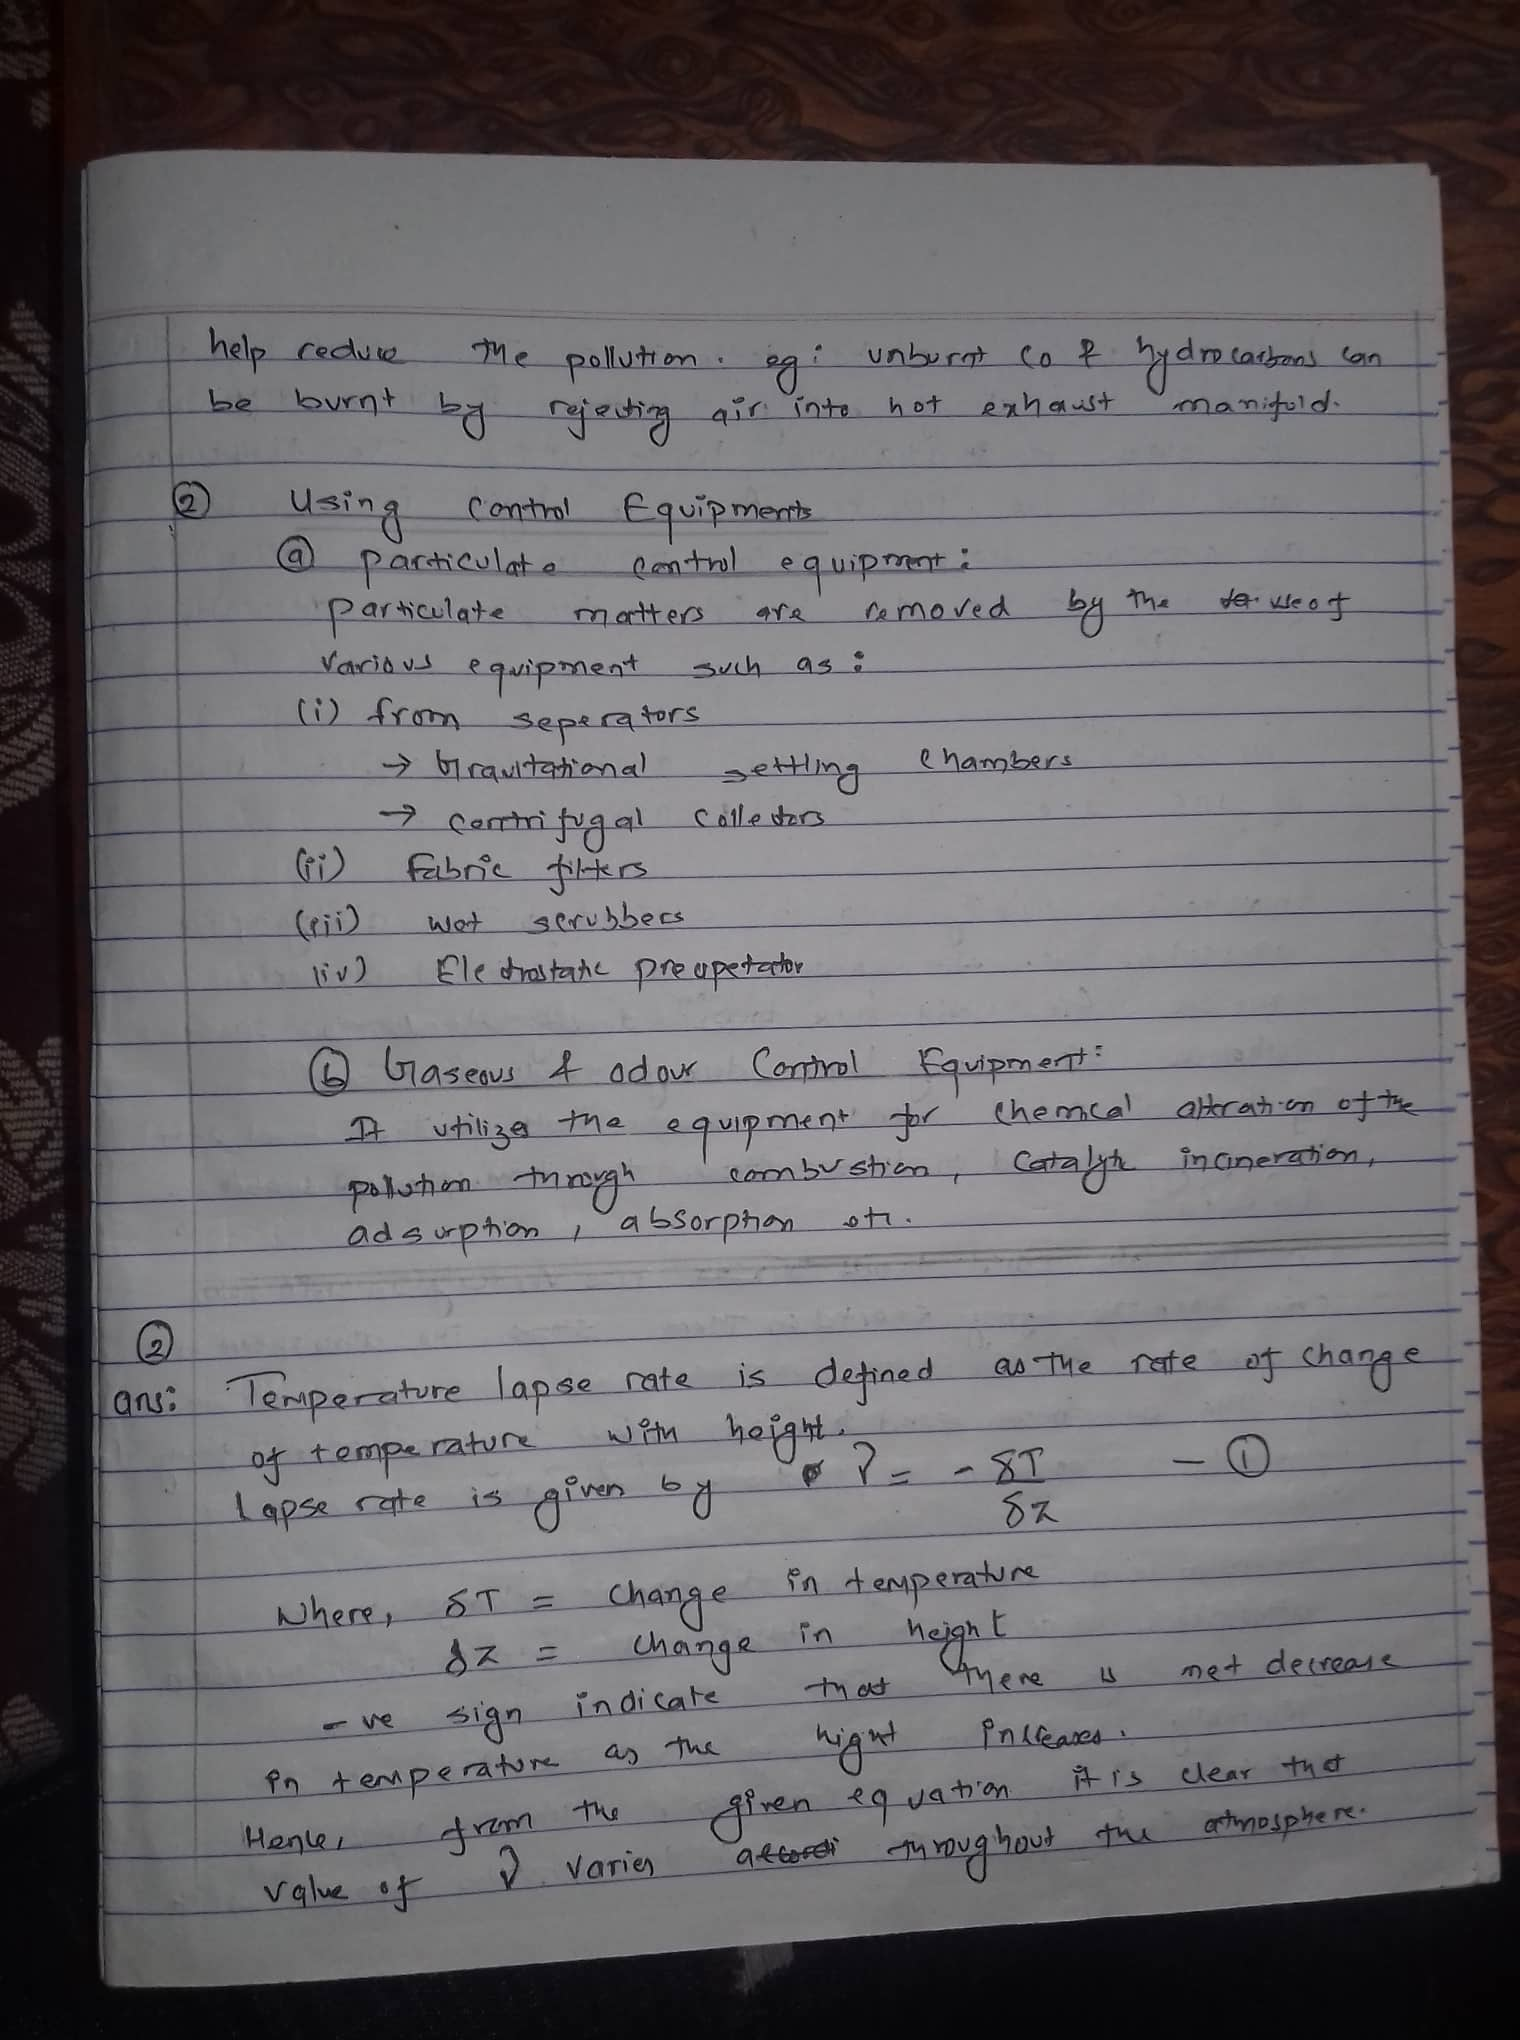 help reduce the pollution. eg: unburnt co & hydrocarbons can
be burnt by rejecting air into hot exhaust manifold.
② Using Control Equipments
ⓐ particulate control equipment:
particulate matters are removed by the use of
various equipment such as:
(i) from seperators
→ Gravitational settling chambers
→ centrifugal collectors
(ii) fabric filters
(iii) wet scrubbers
(iv) Electrostatic precipetator
ⓑ Gaseous & odour Control Equipment:
It utilizes the equipment for chemical alteration of the
pollution through combustion, catalytic incineration,
adsorption, absorption etc.
②
ans: Temperature lapse rate is defined as the rate of change
of temperature with height.
lapse rate is given by = - δT - ①
δz
Where, δT = change in temperature
δz = change in height
-ve sign indicate that there is net decrease
in temperature as the hight increases.
Hence, from the given equation it is clear that
value of varies throughout the atmosphere.